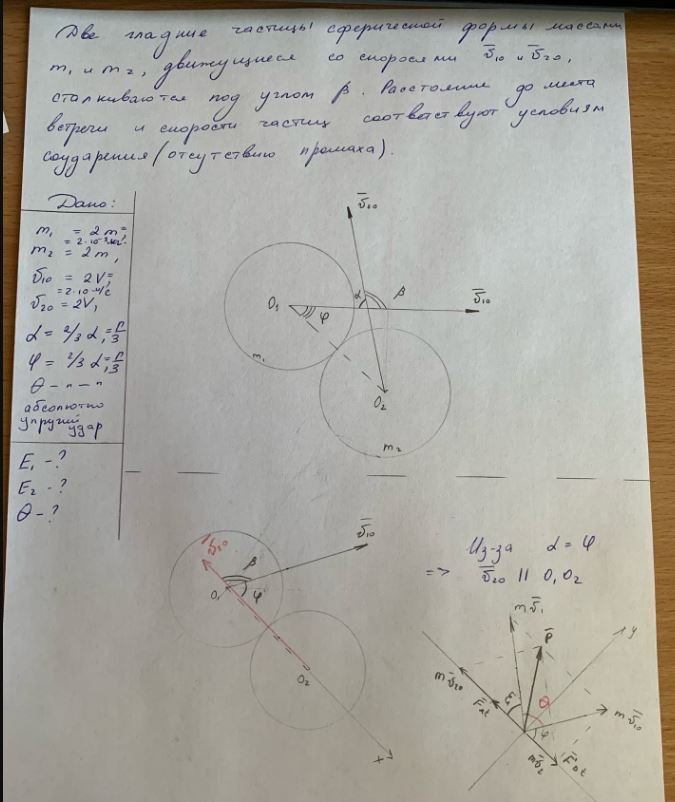 Две гладкие частицы сферической формы массами
m₁ и m₂, движущиеся со скоросями v̅₁₀ и v̅₂₀,
сталкиваются под углом β. Расстояние до места
встречи и скорости частиц соответствуют условиям
соударения (отсутствию промаха).
Дано:
m₁ = 2m₁=
m₂ = 2m,
v̅₁₀ = 2V₁=
v̅₂₀ = 2V,
α = 2/3 α₁ = π/3
φ = 2/3 α₁ = π/3
θ - " - "
абсолютно
упругий
удар
E₁ - ?
E₂ - ?
θ - ?
v̅₁₀
O₁
α
β
φ
v̅₁₀
m₁
O₂
m₂
v̅₁₀
v̅₁₀
β
O₁
φ
O₂
x
Из-за α = φ
=> v̅₂₀ || O₁O₂
mv̅₁
P̅
y
mv̅₂₀
F̅Δt
θ
mv̅₁₀
φ
mv̅₂
F̅Δt